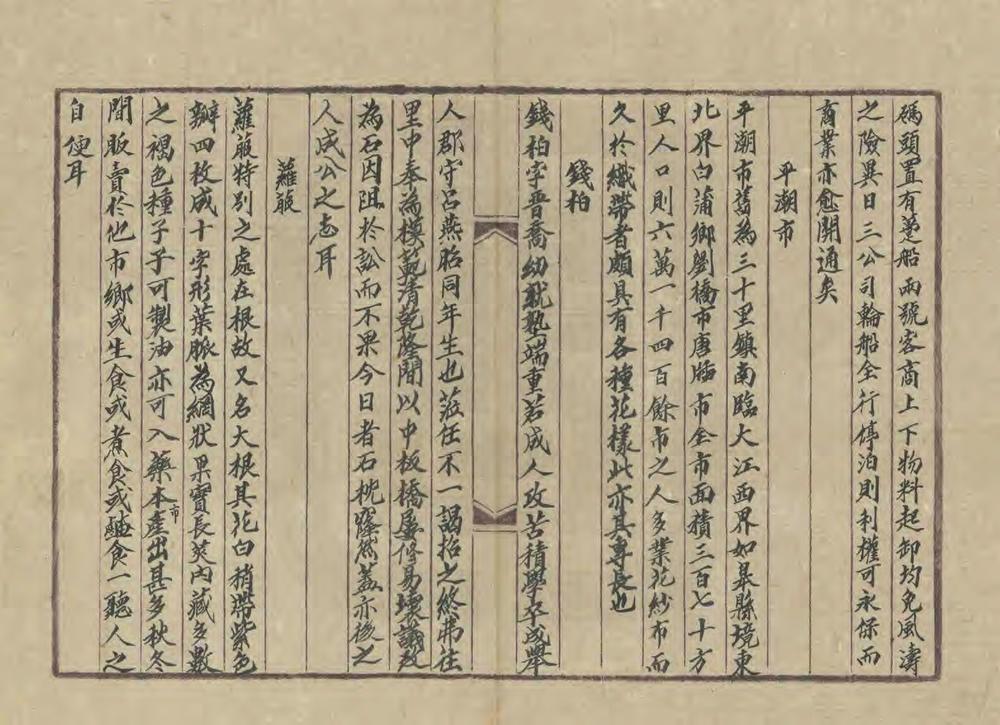 碼頭置有躉船兩號客商上下物料起卸均免風濤
之險異日三公司輪船全行停泊則利權可永保而
商業亦愈開通矣
平潮市
平潮市舊為三十里鎮南臨大江西界如皋縣境東
北界白蒲鄉劉橋市唐牐市全市面積三百七十方
里人口則六萬一千四百餘市之人多業花紗布而
久於織帶者頗具有各種花樣此亦其專長也
錢柏
錢柏字晉喬幼就塾端重若成人攻苦積學卒成舉
人郡守呂燕昭同年生也蒞任不一謁招之終弗往
里中奉為模範清乾隆間以中板橋屢修易壞議改
為石因阻於訟而不果今日者石杠蹬然蓋亦後之
人成公之志耳
蘿蔔
蘿蔔特別之處在根故又名大根其花白稍帶紫色
瓣四枚成十字形葉脈為網狀果實長莢內藏多數
之褐色種子子可製油亦可入藥本市產出甚多秋冬
間販賣於他市鄉或生食或煮食或鹽食一聽人之
自便耳